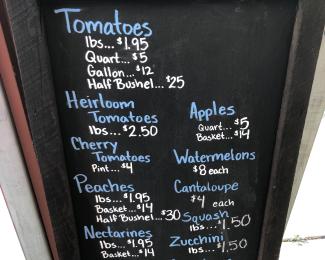 Tomatoes
lbs... $1.95
Quart.. $5
Gallon.. $12
Half Bushel... $25
Heirloom
Tomatoes
lbs... $2.50
Cherry
Tomatoes
Pint... $4
Peaches
lbs... $1.95
Basket.. $14
Half Bushel.. $30
Nectarines
lbs... $1.95
Basket.. $14
Apples
Quart.. $5
Basket.. $14
Watermelons
$8 each
Cantaloupe
$4 each
Squash
lbs... $1.50
Zucchini
lbs... $1.50